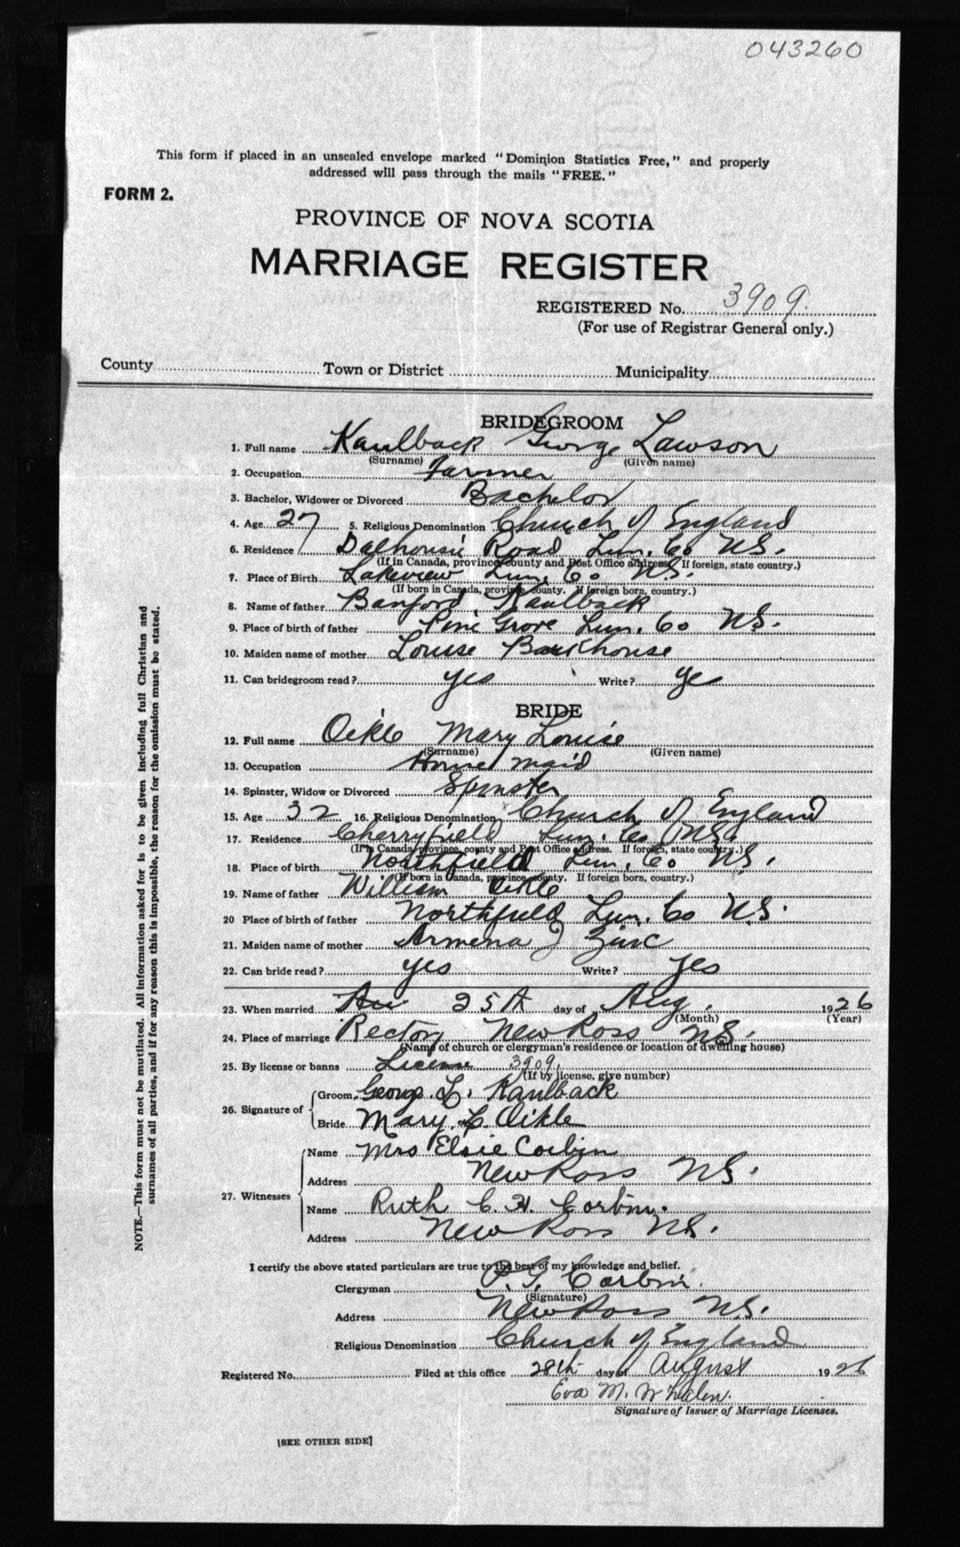 043260
This form if placed in an unsealed envelope marked "Dominion Statistics Free," and properly
addressed will pass through the mails "FREE."
FORM 2.
PROVINCE OF NOVA SCOTIA
MARRIAGE REGISTER
REGISTERED No. 3909.
(For use of Registrar General only.)
County Town or District Municipality
BRIDEGROOM
1. Full name Kaulback George Lawson
(Surname) (Given name)
2. Occupation Farmer
3. Bachelor, Widower or Divorced Bachelor
4. Age 27 5. Religious Denomination Church of England
6. Residence Dalhousie Road, Lun. Co NS.
(If in Canada, province, county and Post Office address. If foreign, state country.)
7. Place of Birth Lakeview Lun. Co NS.
(If born in Canada, province, county. If foreign born, country.)
8. Name of father Banford Kaulback
9. Place of birth of father Pine Grove Lun. Co NS.
10. Maiden name of mother Louise Barkhouse
11. Can bridegroom read? yes Write? yes
BRIDE
12. Full name Oikle Mary Louise
(Surname) (Given name)
13. Occupation Home maid
14. Spinster, Widow or Divorced Spinster
15. Age 32 16. Religious Denomination Church of England
17. Residence Cherryfield Lun. Co NS.
(If in Canada, province, county and Post Office address. If foreign, state country.)
18. Place of birth Northfield Lun. Co NS.
(If born in Canada, province, county. If foreign born, country.)
19. Name of father William Oikle
20 Place of birth of father Northfield Lun. Co NS.
21. Maiden name of mother Armena J Zinc
22. Can bride read? yes Write? yes
23. When married 25th day of Aug. 1926
(Month) (Year)
24. Place of marriage Rectory New Ross NS.
(Name of church or clergyman's residence or location of dwelling house)
25. By license or banns License 3909.
(If by license, give number)
26. Signature of Groom George L. Kaulback
Bride Mary L Oikle
27. Witnesses Name Mrs Elsie Corbin
Address New Ross NS.
Name Ruth C. H. Corbin.
Address New Ross NS.
I certify the above stated particulars are true to the best of my knowledge and belief.
Clergyman P. G. Corbin.
(Signature)
Address New Ross NS.
Religious Denomination Church of England
Registered No. Filed at this office 28th day of August 1926
Eva M. Whalen.
Signature of Issuer of Marriage Licenses.
[SEE OTHER SIDE]
NOTE.—This form must not be mutilated. All information asked for is to be given including full Christian and
surnames of all parties, and if for any reason this is impossible, the reason for the omission must be stated.